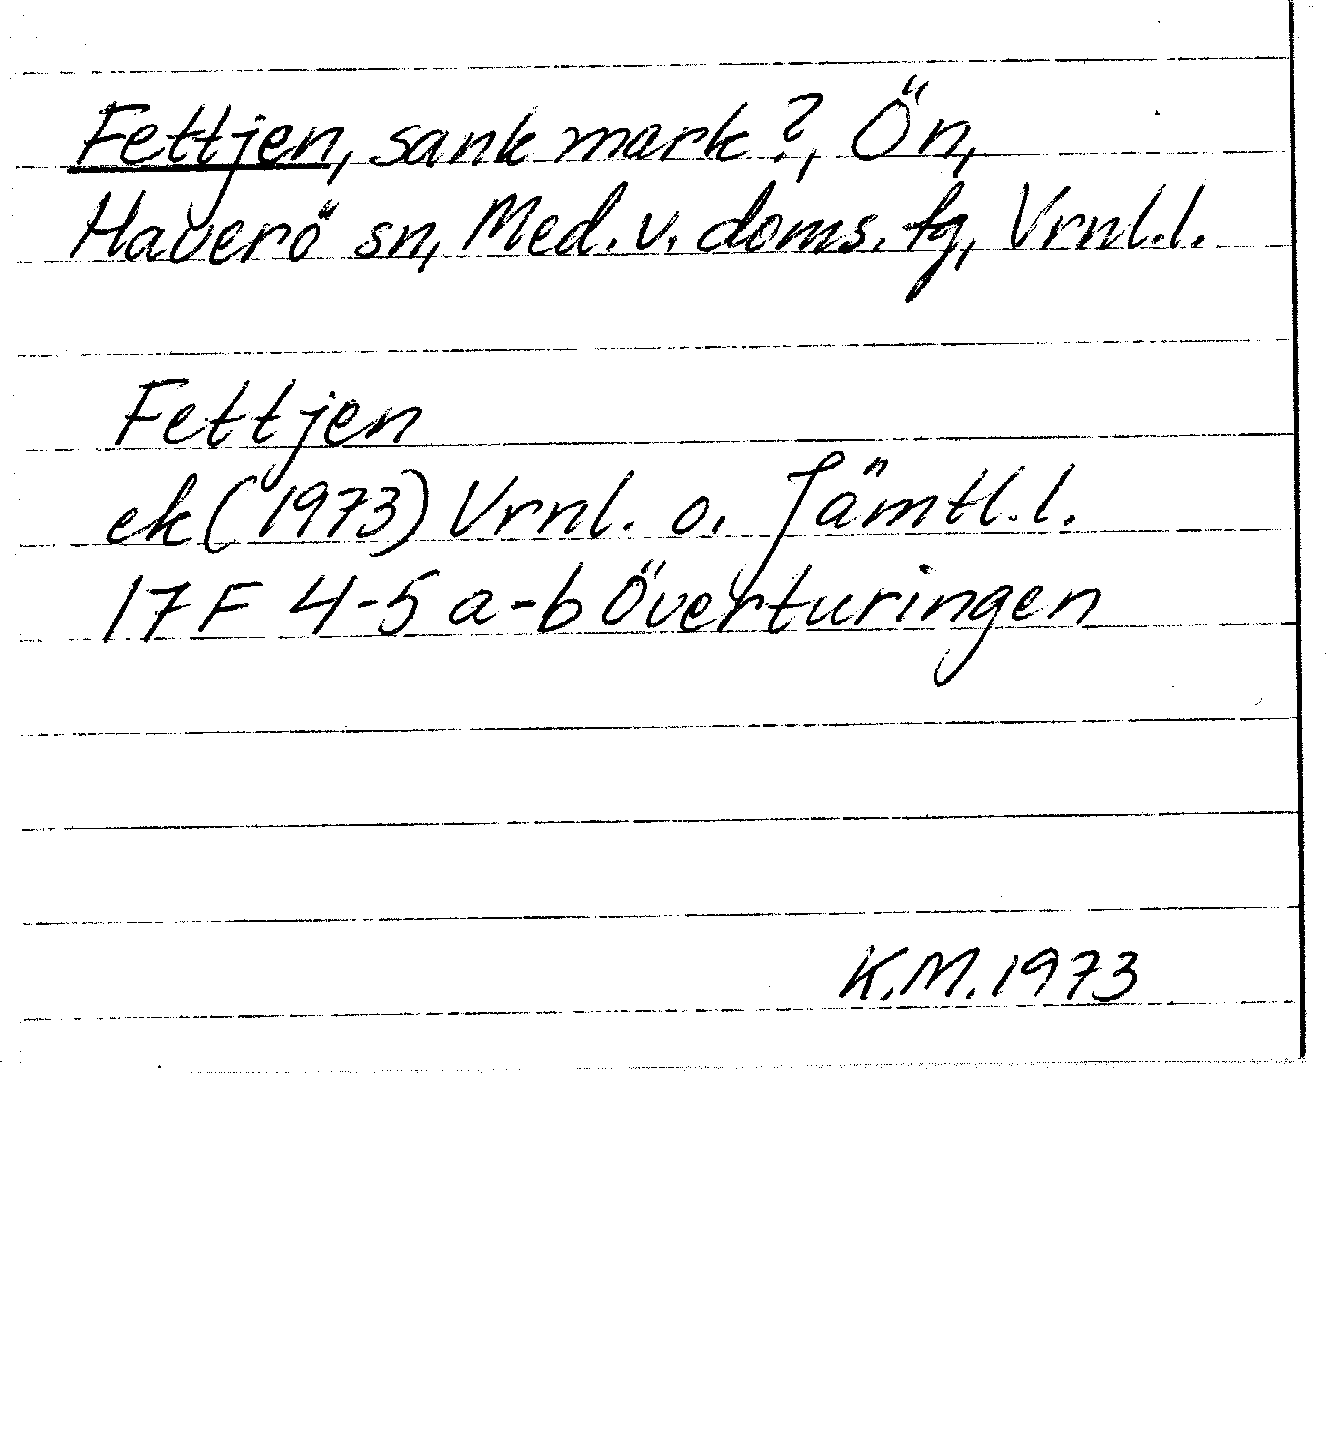 Fettjen, sank mark?, Ön,
Haverö sn, Med. v. doms. tg, Vrnl.l.
Fettjen
ek (1973) Vrnl. o. Jämtl.l.
17F 4-5 a-b Överturingen
K.M. 1973